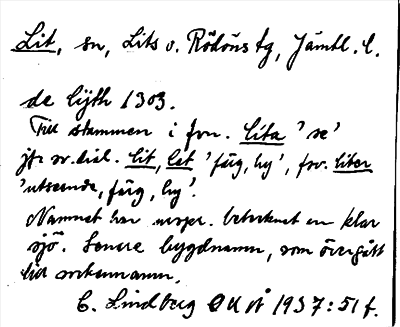 Lit, sn, Lits o. Rödöns tg, Jämtl. l.
de lijth 1303.
Till stammen i fvn. líta 'se'
jfr sv. dial. lit, let 'färg, hy', fsv. liter
'utseende, färg, hy'.
Namnet har urspr. betecknat en klar
sjö. Senare bygdnamn, som övergått
till sockennamn.
C. Lindberg OUÅ 1937:51 f.